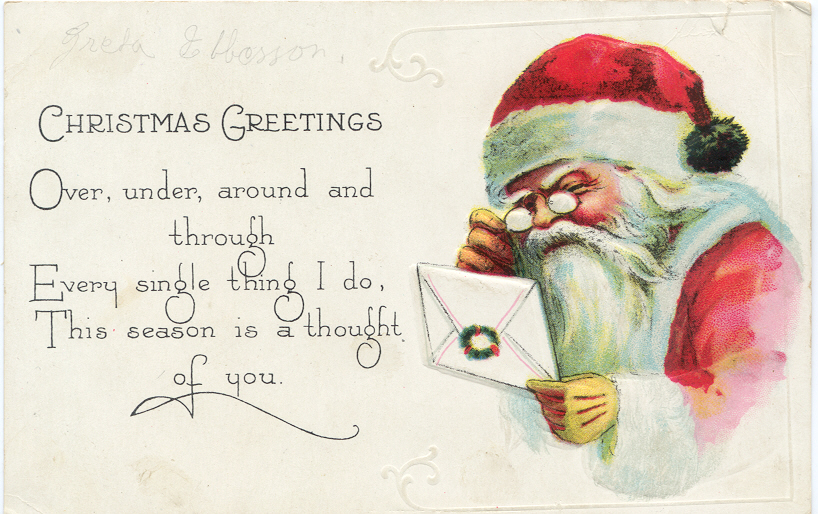 Greta Ebbesson.
CHRISTMAS GREETINGS
Over, under, around and
through
Every single thing I do,
This season is a thought
of you.